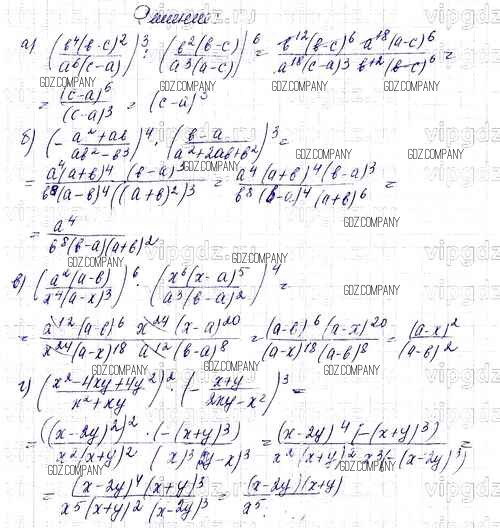 Решение:
а) (b⁴(b-c)² / a⁶(c-a))³ : (b²(b-c) / a³(a-c))⁶ = b¹²(b-c)⁶ a¹⁸(a-c)⁶ / a¹⁸(c-a)³ b¹²(b-c)⁶ =
= (c-a)⁶ / (c-a)³ = (c-a)³
б) (- a²+ab / ab²-b³)⁴ · (b-a / a²+2ab+b²)³ =
= a⁴(a+b)⁴ (b-a)³ / b⁸(a-b)⁴((a+b)²)³ = a⁴(a+b)⁴(b-a)³ / b⁸(b-a)⁴(a+b)⁶ =
= a⁴ / b⁸(b-a)(a+b)²
в) (a²(a-b) / x⁴(a-x)³)⁶ · (x⁶(x-a)⁵ / a³(b-a)²)⁴ =
= a¹²(a-b)⁶ x²⁴(x-a)²⁰ / x²⁴(a-x)¹⁸ a¹²(b-a)⁸ = (a-b)⁶(a-x)²⁰ / (a-x)¹⁸(a-b)⁸ = (a-x)² / (a-b)²
г) (x²-4xy+4y² / x²+xy)² · (- x+y / 2xy-x²)³ =
= ((x-2y)²)² · (-(x+y)³) / x²(x+y)² (x)³(y-x)³ = (x-2y)⁴(-(x+y)³) / x²(x+y)² x³(-(x-2y)³) =
= (x-2y)⁴(x+y)³ / x⁵(x+y)²(x-2y)³ = (x-2y)(x+y) / x⁵.
GDZ.COMPANY
vipgdz